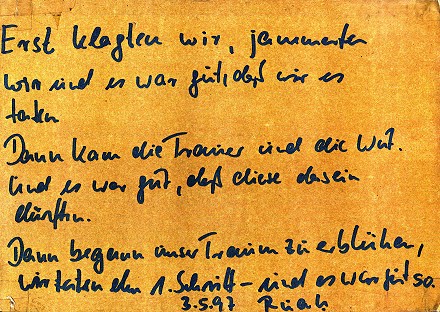 Erst klagten wir, jammerten
wir und es war gut, daß wir es
taten
Dann kam die Trauer und die Wut.
Und es war gut, daß diese dasein
durften.
Dann begann unser Traum zu erblühen,
wir taten den 1. Schritt – und es war gut so.
3.5.97